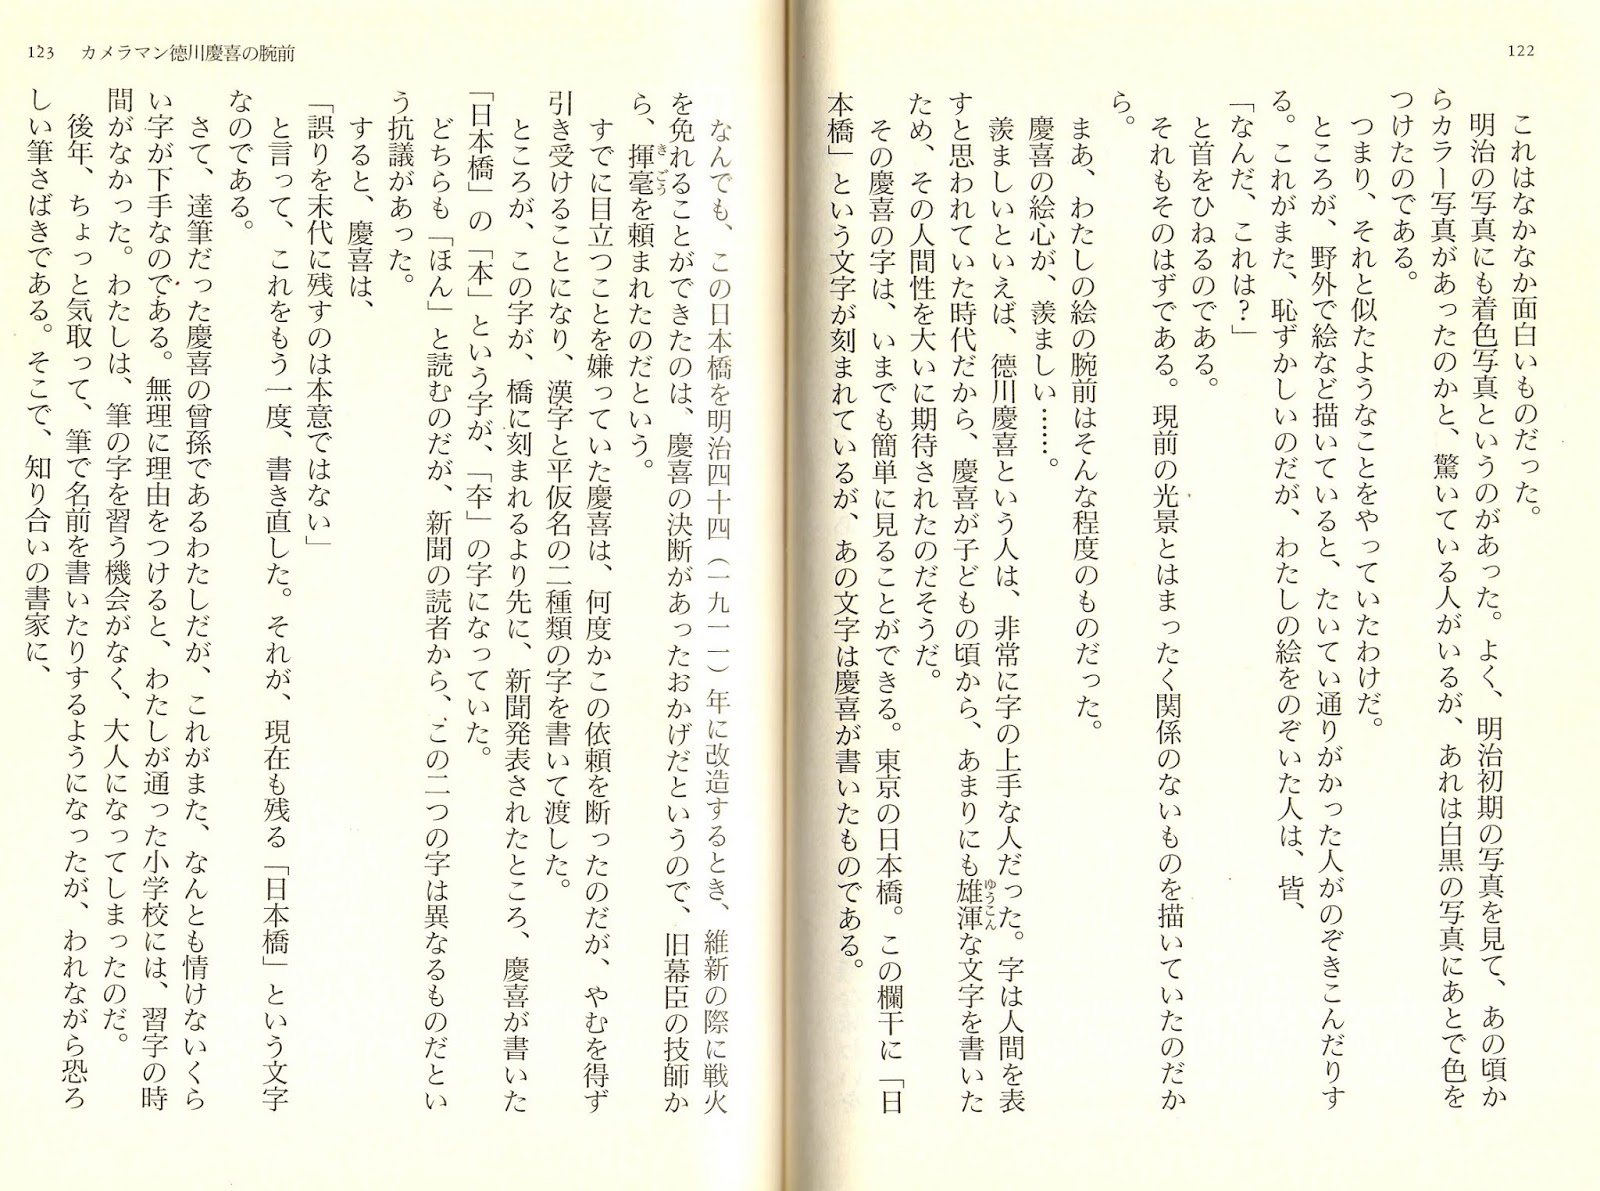 122
これはなかなか面白いものだった。
明治の写真にも着色写真というのがあった。よく、明治初期の写真を見て、あの頃か
らカラー写真があったのかと、驚いている人がいるが、あれは白黒の写真にあとで色を
つけたのである。
つまり、それと似たようなことをやっていたわけだ。
ところが、野外で絵など描いていると、たいてい通りがかった人がのぞきこんだりす
る。これがまた、恥ずかしいのだが、わたしの絵をのぞいた人は、皆、
「なんだ、これは?」
と首をひねるのである。
それもそのはずである。現前の光景とはまったく関係のないものを描いていたのだか
ら。
まあ、わたしの絵の腕前はそんな程度のものだった。
慶喜の絵心が、羨ましい……。
羨ましいといえば、徳川慶喜という人は、非常に字の上手な人だった。字は人間を表
すと思われていた時代だから、慶喜が子どもの頃から、あまりにも雄渾な文字を書いた
ゆうこん
ため、その人間性を大いに期待されたのだそうだ。
その慶喜の字は、いまでも簡単に見ることができる。東京の日本橋。この欄干に「日
本橋」という文字が刻まれているが、あの文字は慶喜が書いたものである。
123 カメラマン徳川慶喜の腕前
なんでも、この日本橋を明治四十四(一九一一)年に改造するとき、維新の際に戦火
を免れることができたのは、慶喜の決断があったおかげだというので、旧幕臣の技師か
ら、揮毫を頼まれたのだという。
きごう
すでに目立つことを嫌っていた慶喜は、何度かこの依頼を断ったのだが、やむを得ず
引き受けることになり、漢字と平仮名の二種類の字を書いて渡した。
ところが、この字が、橋に刻まれるより先に、新聞発表されたところ、慶喜が書いた
「日本橋」の「本」という字が、「夲」の字になっていた。
どちらも「ほん」と読むのだが、新聞の読者から、この二つの字は異なるものだとい
う抗議があった。
すると、慶喜は、
「誤りを末代に残すのは本意ではない」
と言って、これをもう一度、書き直した。それが、現在も残る「日本橋」という文字
なのである。
さて、達筆だった慶喜の曾孫であるわたしだが、これがまた、なんとも情けないくら
い字が下手なのである。無理に理由をつけると、わたしが通った小学校には、習字の時
間がなかった。わたしは、筆の字を習う機会がなく、大人になってしまったのだ。
後年、ちょっと気取って、筆で名前を書いたりするようになったが、われながら恐ろ
しい筆さばきである。そこで、知り合いの書家に、